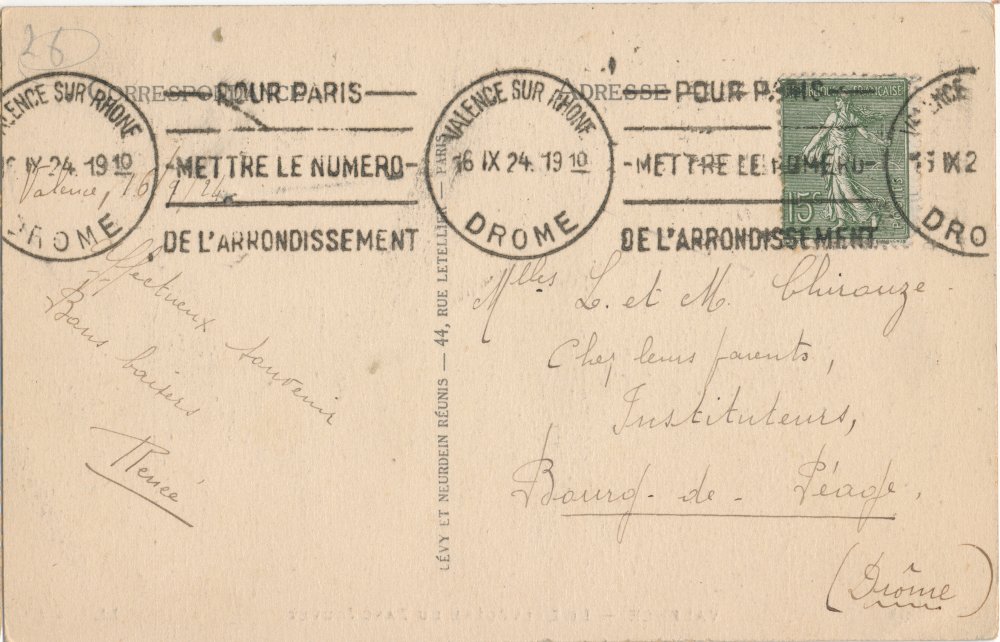 26
CORRESPONDANCE
ADRESSE
VALENCE SUR RHONE
16 IX 24. 19 10
DROME
POUR PARIS
METTRE LE NUMERO
DE L'ARRONDISSEMENT
VALENCE SUR RHONE
16 IX 24. 19 10
DROME
POUR PARIS
METTRE LE NUMERO
DE L'ARRONDISSEMENT
VALENCE
16 IX 2
DRO
15c
Valence, 16/9/24.
Affectueux souvenir
Bons baisers
Renée
LÉVY ET NEURDEIN RÉUNIS — 44, RUE LETELLIER — PARIS
Mlles L. et M. Chirouze
Chez leurs parents,
Instituteurs,
Bourg-de-Péage,
(Drôme)